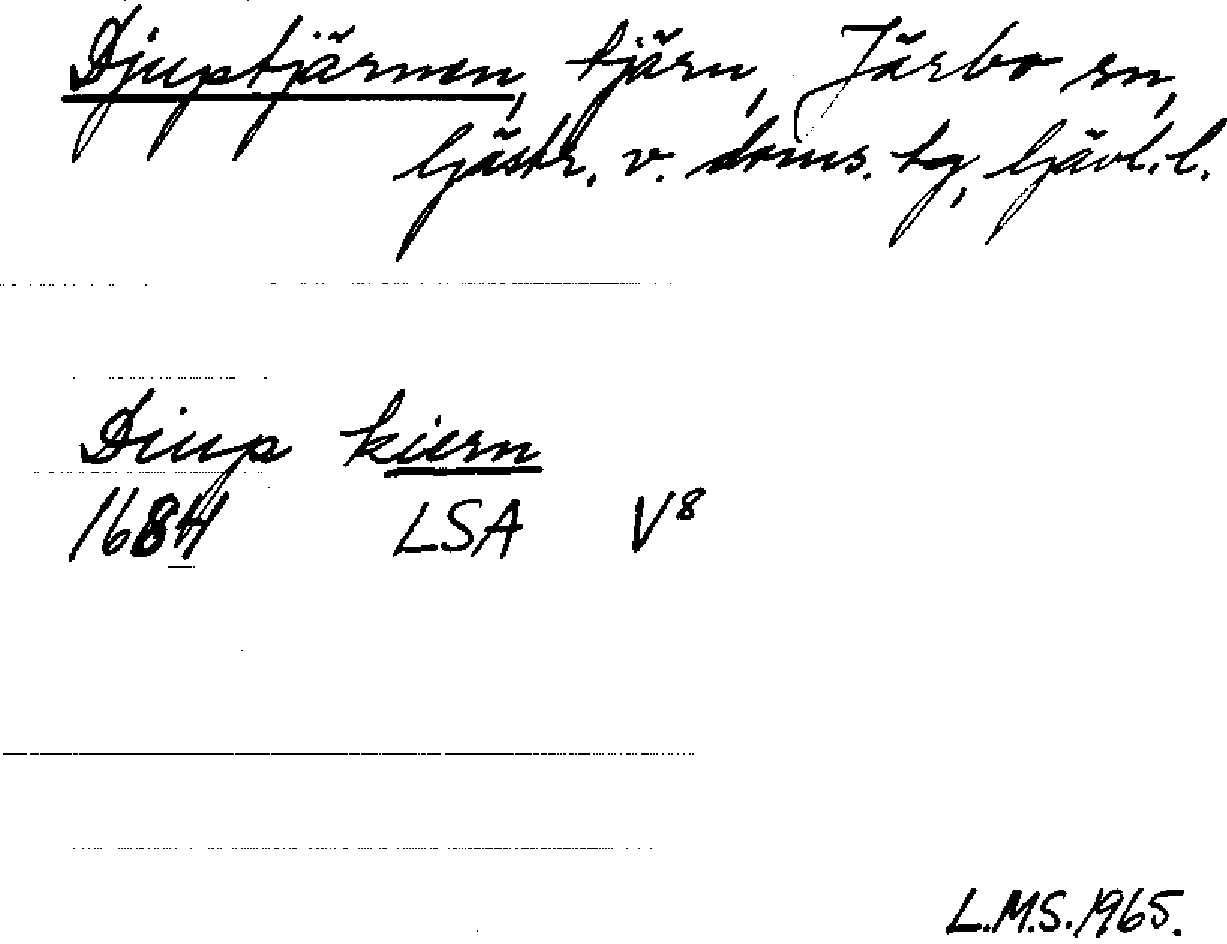 Djuptjärnen, tjärn, Järbo sn,
Gästr. v. doms. tg, Gävl. l.
Diup kiern
1684 LSA V8
L.M.S. 1965.